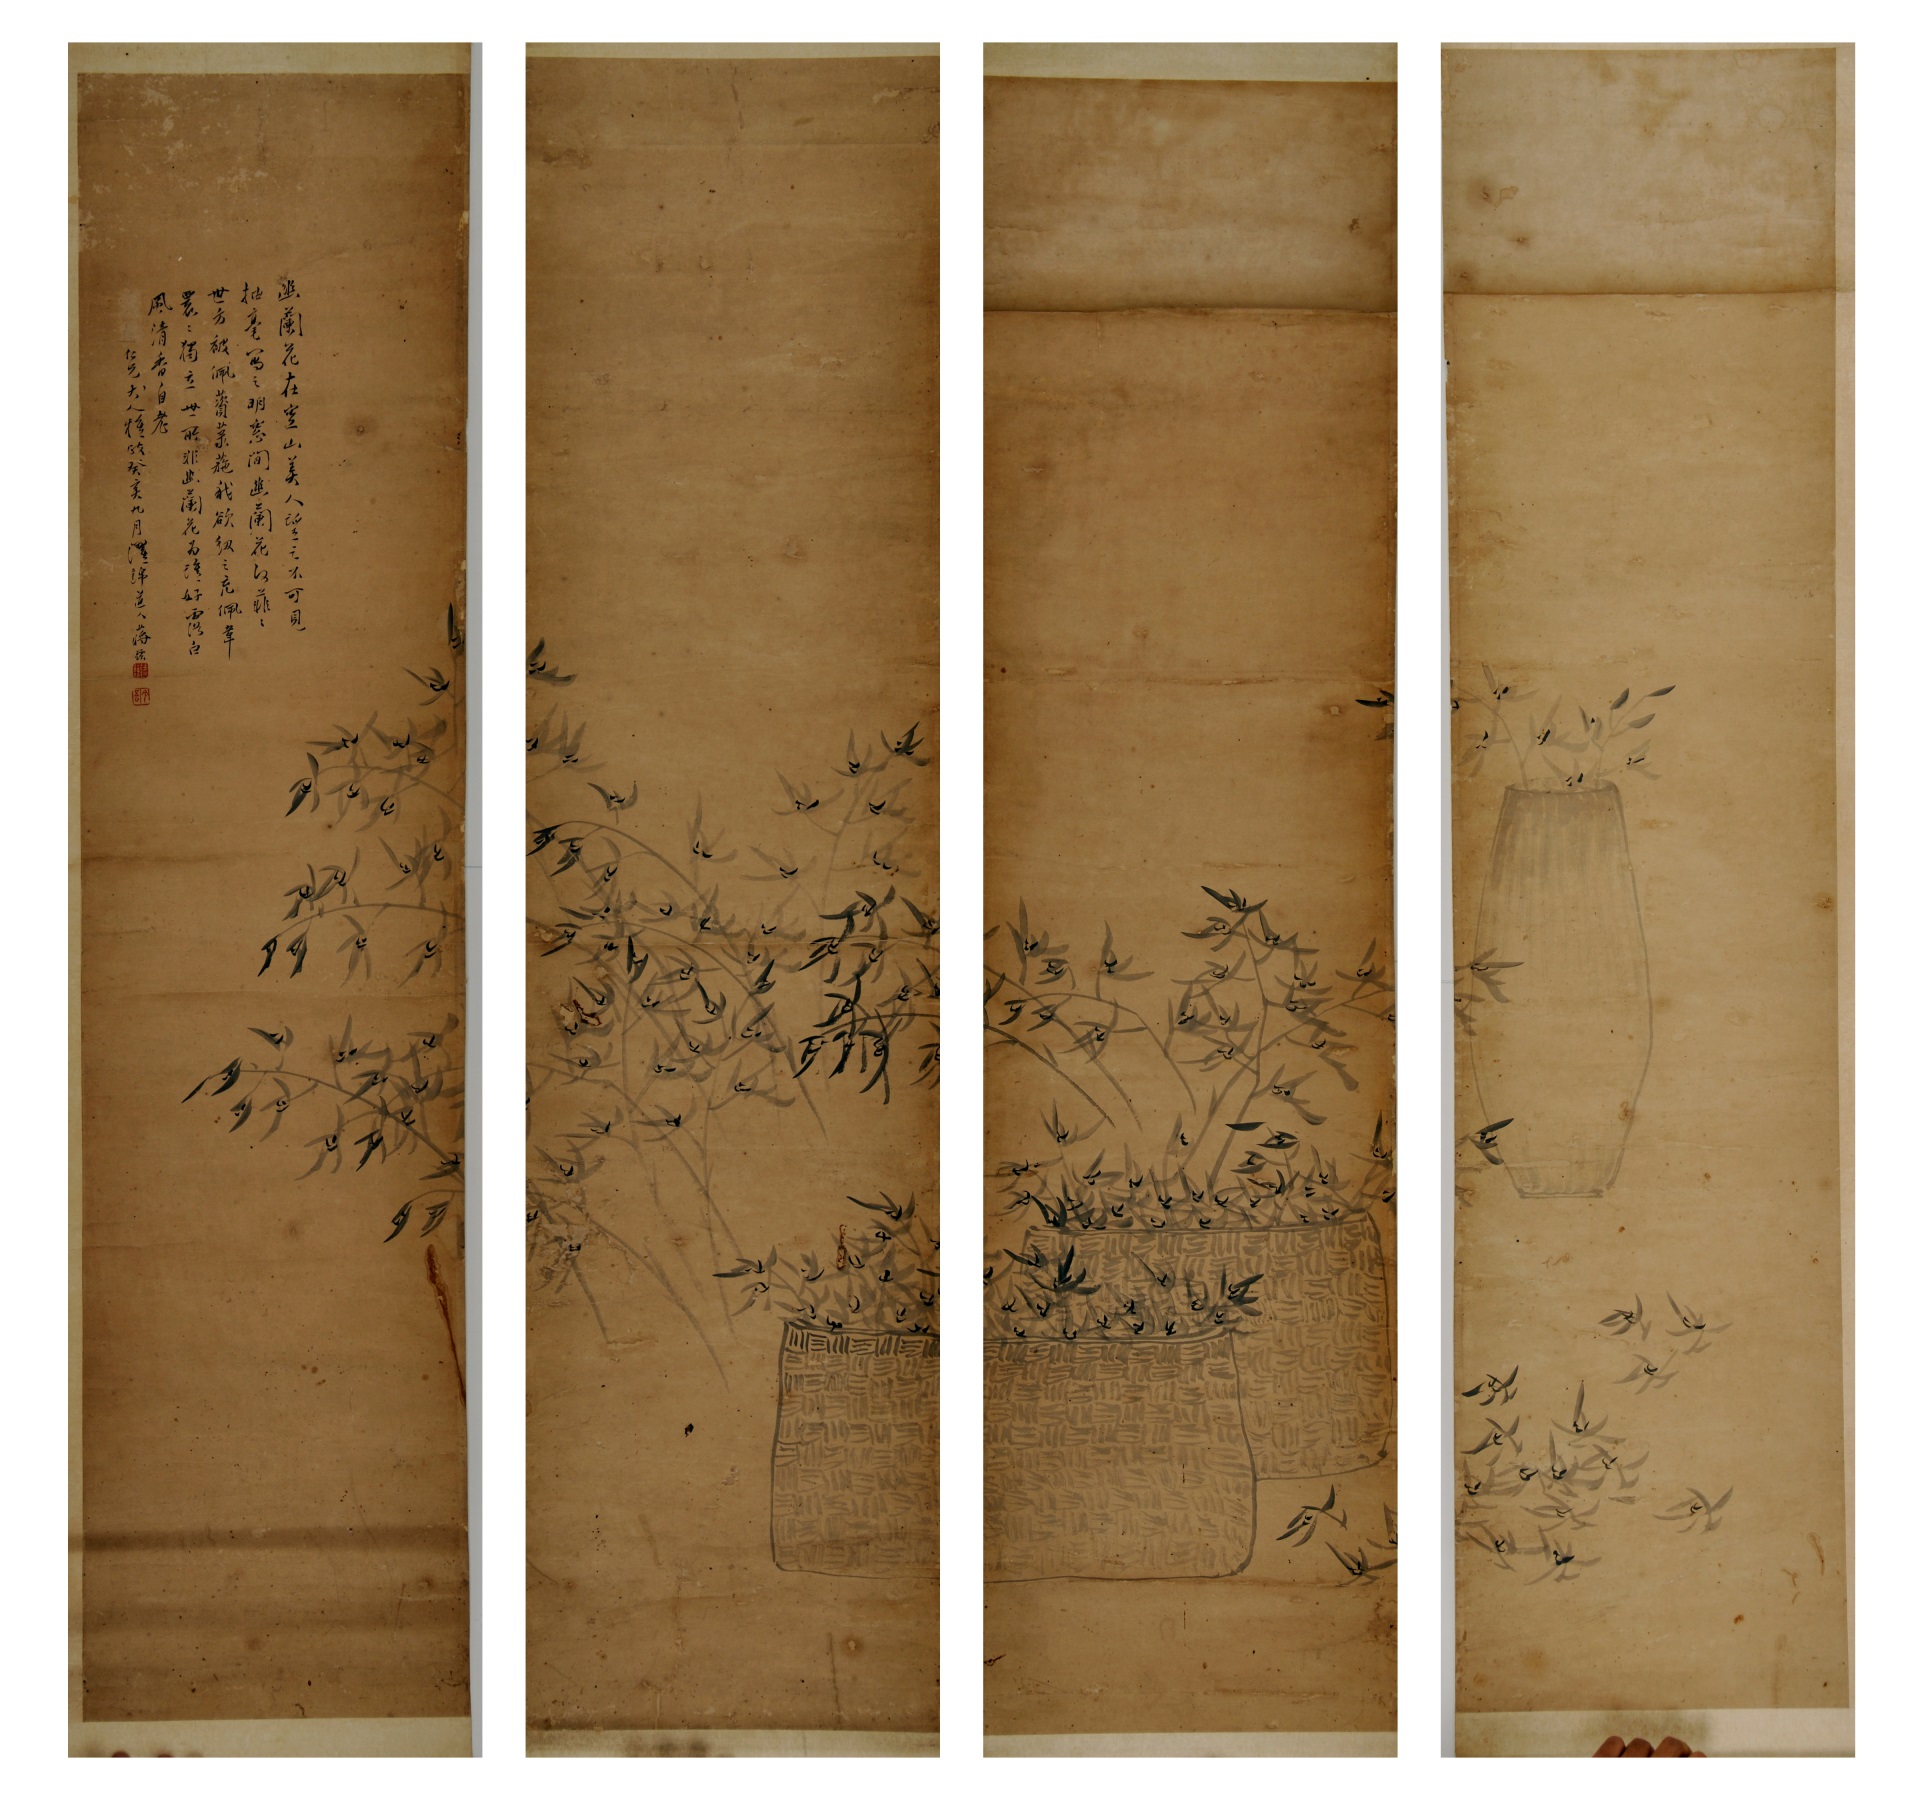 幽蘭花在空山美人望之不可見
抽毫寫之明窓間幽蘭花何菲〻
世方被佩薋菉葹我欲紉之充佩韋
裊〻獨立世所非幽蘭花為誰好露白
風清香自老
仁兄大人雅 癸亥九月 道人蔣